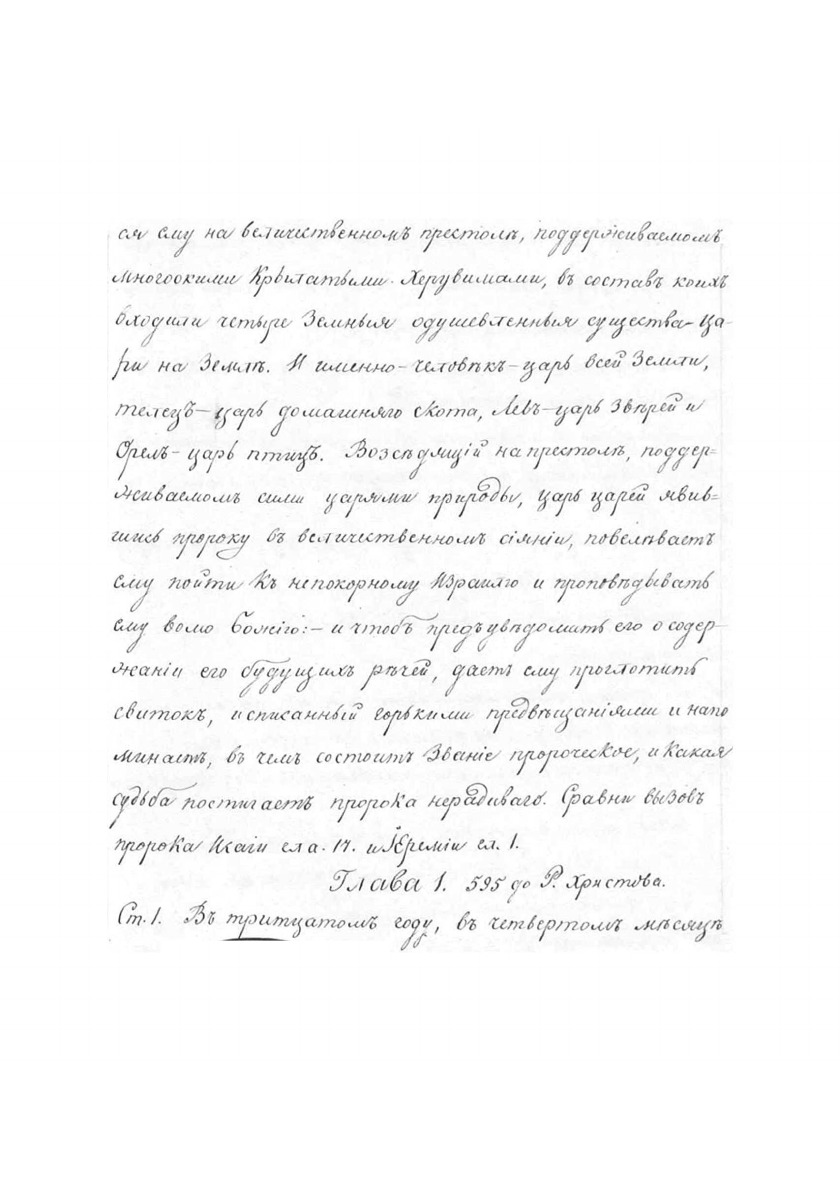 ся ему на величественномъ престолѣ, поддерживаемомъ
многоокими Крылатыми Херувимами, въ составъ коихъ
входили четыре Земныя одушевленныя существа - Ца-
ри на Землѣ. И именно - человѣкъ - царь всей Земли,
телецъ - царь домашняго скота, Левъ - царь Звѣрей и
Орелъ - царь птицъ. Возсѣдящій на престолѣ, поддер=
живаемомъ сими царями природы, царь царей явив=
шись пророку въ величественномъ сіяніи, повелѣваетъ
ему пойти Къ непокорному Израилю и проповѣдывать
ему волю Божію: - и чтобъ предъувѣдомить его о содер-
жаніи его будущихъ рѣчей, даетъ ему проглотить
свитокъ, исписанный горькими предвѣщаніями и напо
минаетъ, въ чемъ состоитъ Званіе пророческое, и Какая
судьба постигаетъ пророка нерадиваго. Сравни вызовъ
пророка Исаіи гла. 17. и Іереміи гл. 1.
Глава 1. 595 до Р. Христова.
Ст. 1. Въ тритцатомъ году, въ четвертомъ мѣсяцѣ